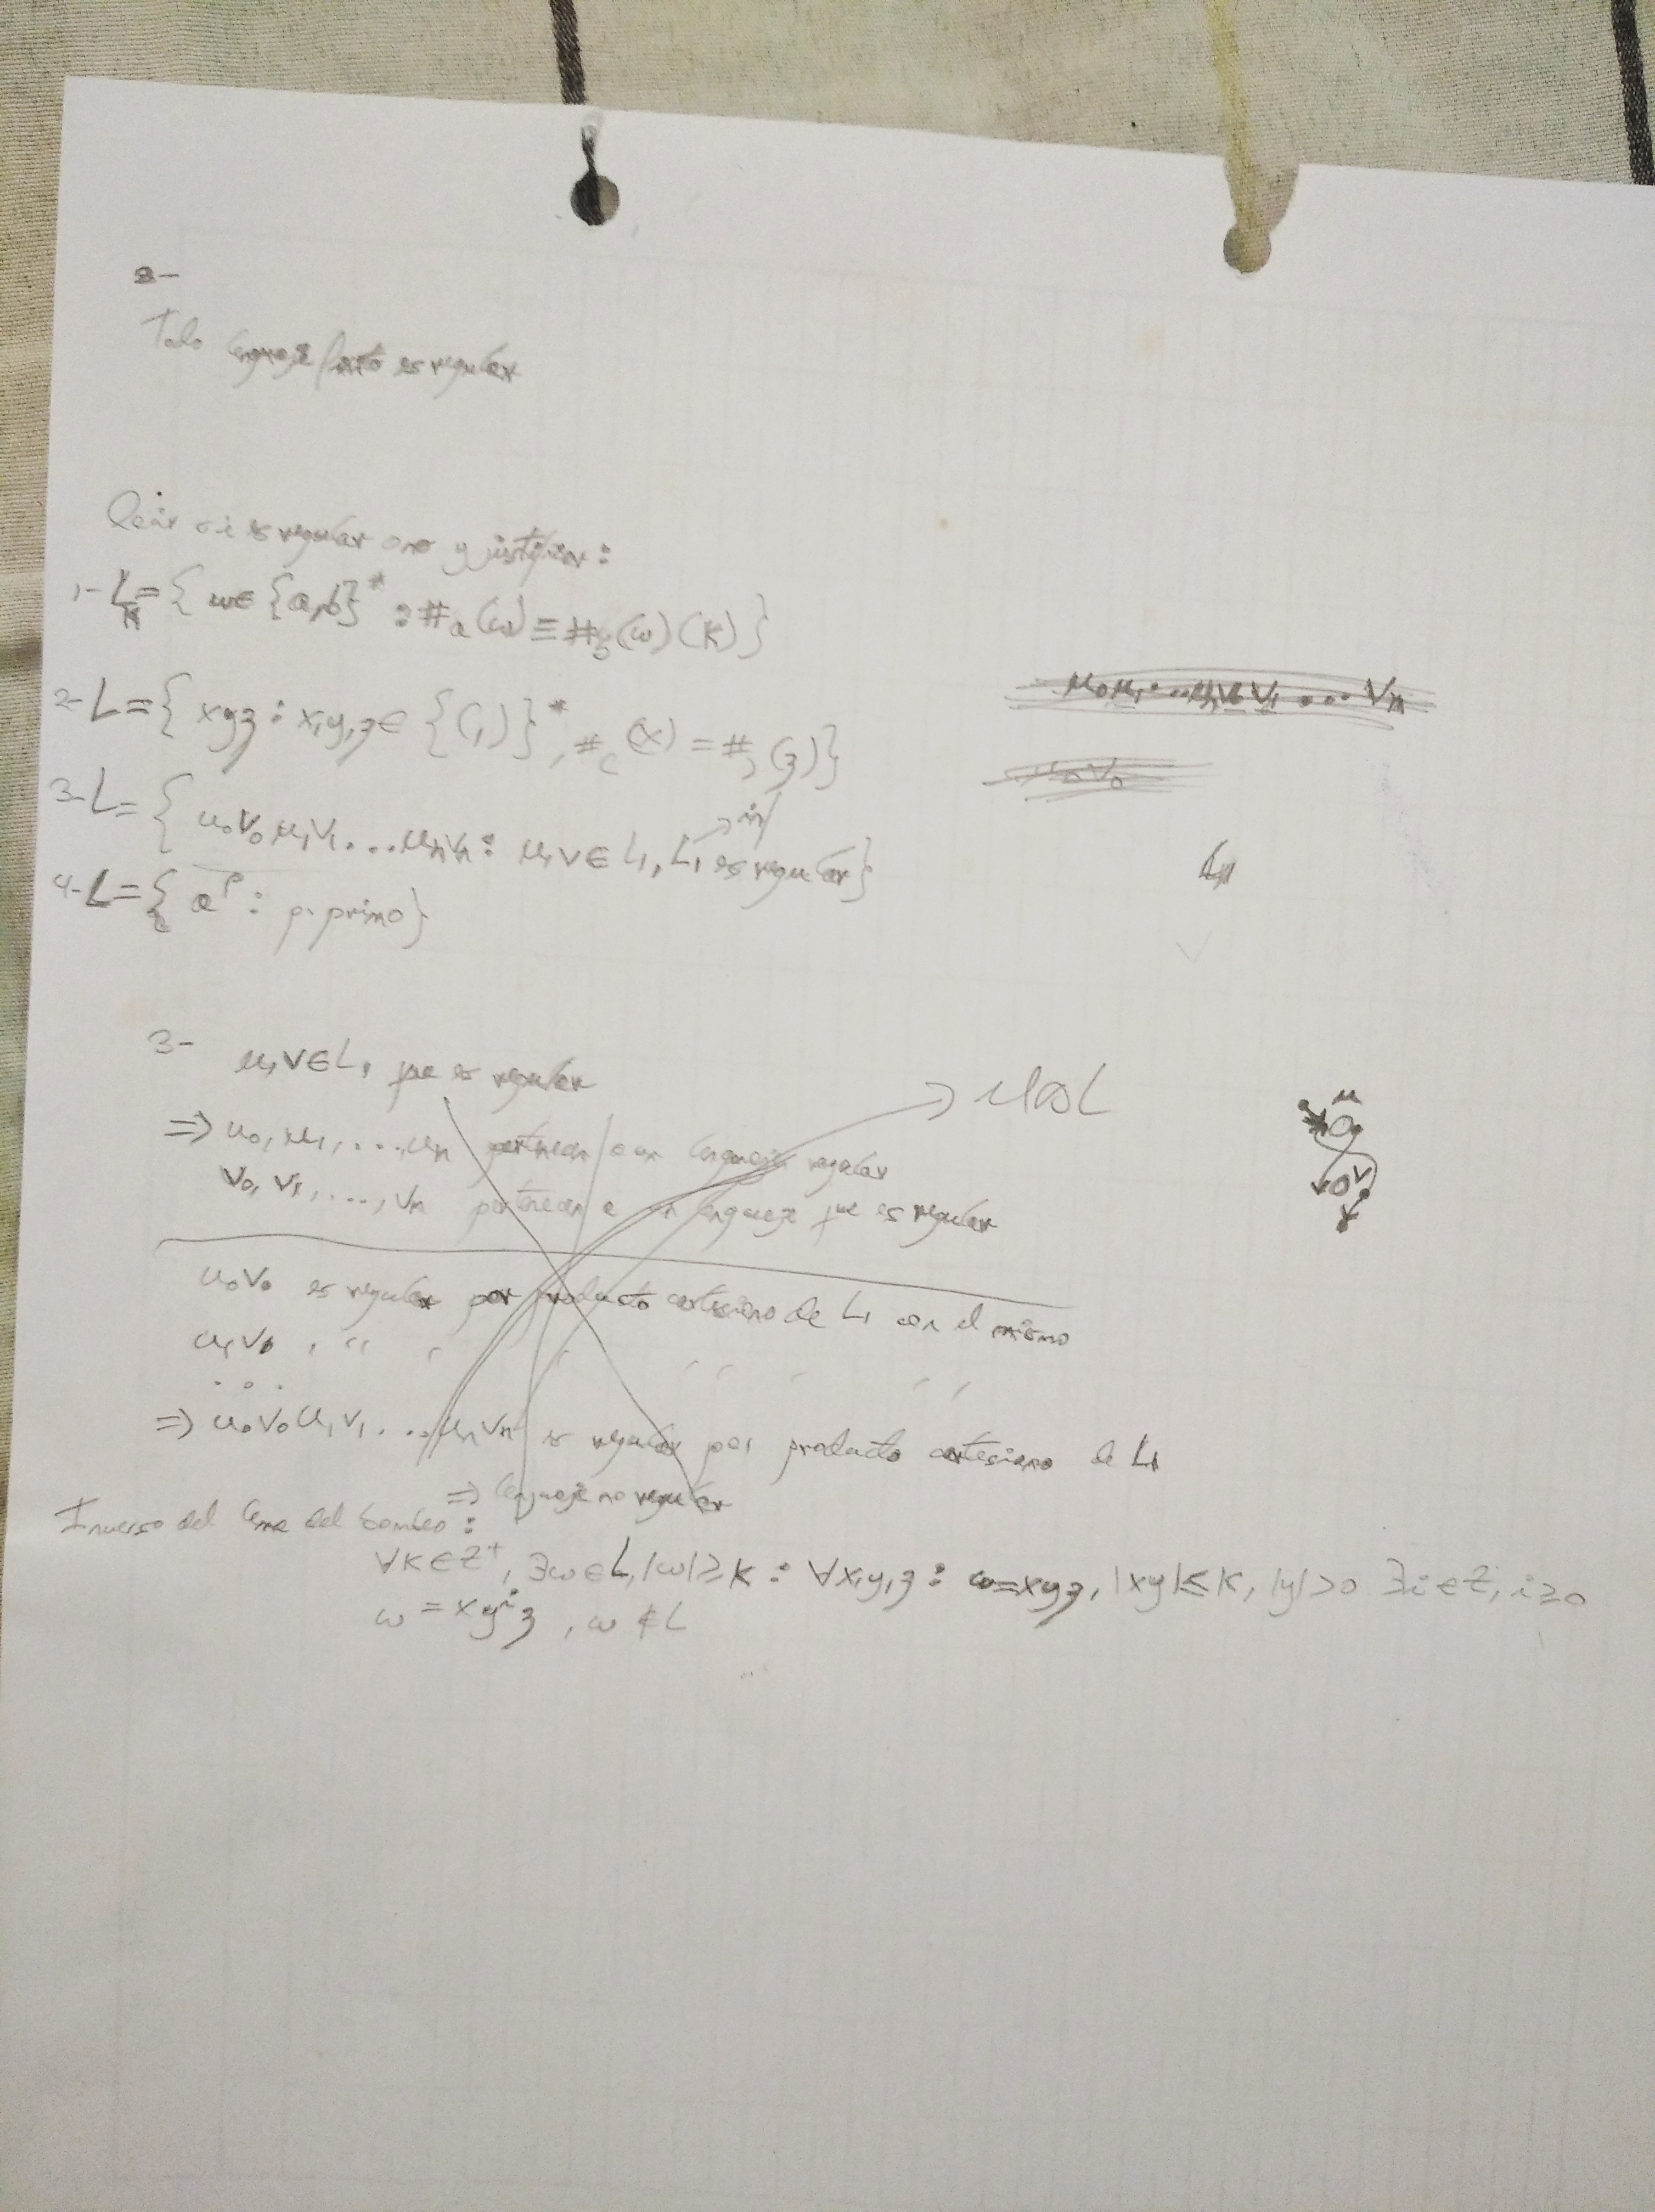 2-
Todo lenguaje finito es regular
Decir si es regular o no y justificar:
1- Lₖ = { w ∈ {a,b}* : #ₐ(w) ≡ #_b(w) (K) }
2- L = { xyz : x,y,z ∈ {(,)}*, #_( (x) = #_) (z) }
3- L = { u₀v₀u₁v₁...uₙvₙ : u,v ∈ L₁, L₁ es regular }
4- L = { aᵖ : p primo }
L₁
3- u,v ∈ L₁ que es regular
→ MAL
⇒ u₀, u₁, ..., uₙ pertenecen a un lenguaje regular
v₀, v₁, ..., vₙ pertenecen a un lenguaje que es regular
u₀v₀ es regular por producto cartesiano de L₁ con el mismo
u₁v₁ " " " " " "
...
⇒ u₀v₀u₁v₁...uₙvₙ es regular por producto cartesiano de L₁
⇒ lenguaje no regular
Inverso del lema del bombeo:
∀K ∈ Z⁺, ∃w ∈ L, |w| ≥ K : ∀x,y,z : w = xyz, |xy| ≤ K, |y| > 0 ∃i ∈ Z, i ≥ 0
w = xyⁱz, w ∉ L